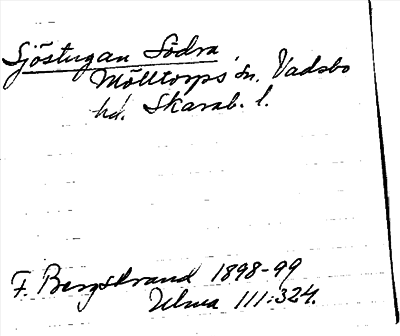 Sjöstugan Södra,
Mölltorps sn, Vadsbo
hd. Skarab. l.
F. Bergstrand 1898-99
Ulma 111:324.